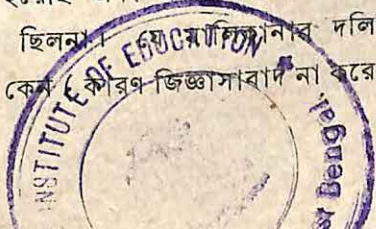 ছিলনা। যে মালিকানার দলি
কেন? কারণ জিজ্ঞাসাবাদ না করে
INSTITUTE OF EDUCATION
Bengal